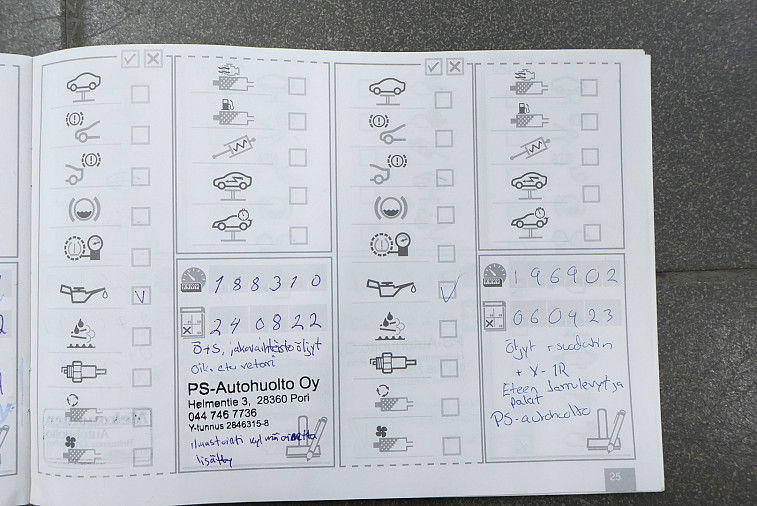 188310
240822
Ö+S, jakovaihteisto öljyt
Oik. etu vetoni
PS-Autohuolto Oy
Helmentie 3, 28360 Pori
044 746 7736
Y-tunnus 2846315-8
ilmastointi kylmäainetta
lisätty
196902
060923
Öljyt + suodatin
+ X-1R
Eteen Jarrulevyt ja
palat
PS-autohuolto
25